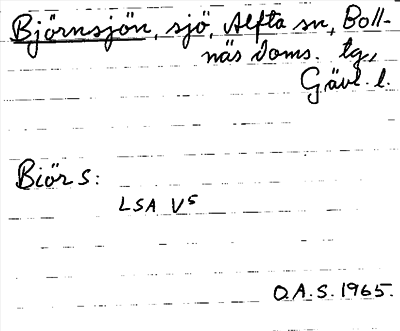 Björnsjön, sjö, Alfta sn, Boll-
näs doms. tg,
Gävl. l.
Biör S:
LSA V5
O.A.S. 1965.